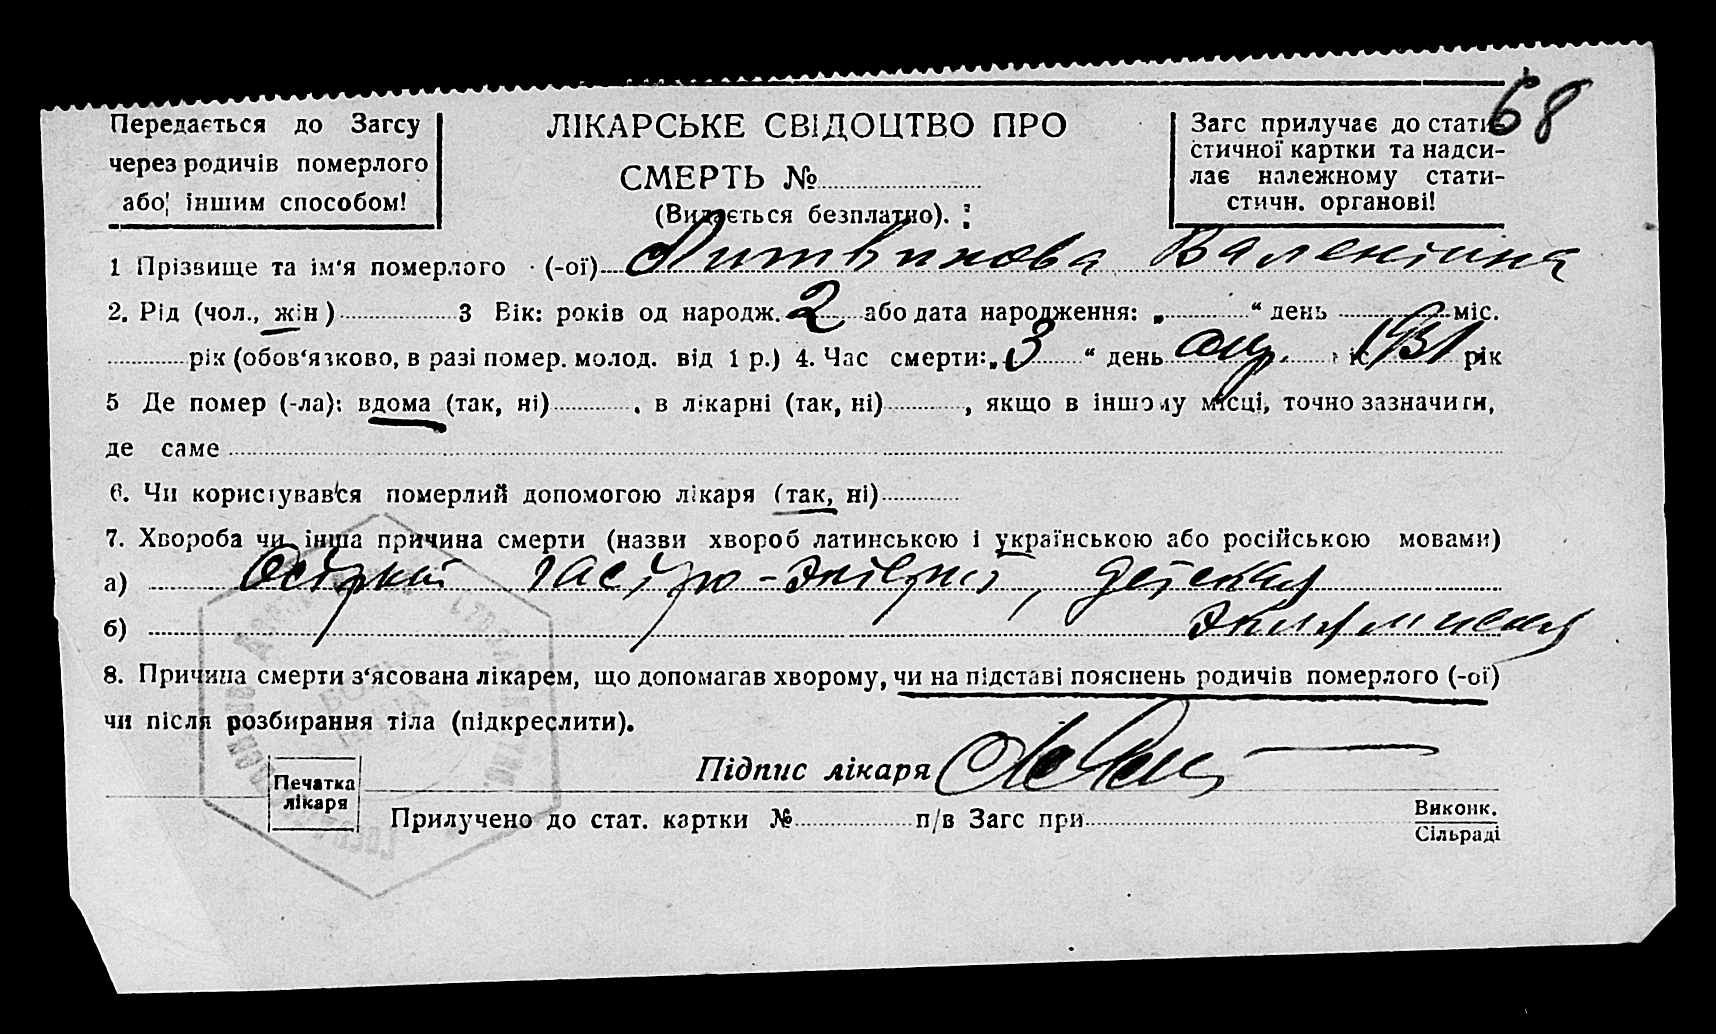 68
Передається до Загсу
через родичів померлого
або іншим способом!
ЛІКАРСЬКЕ СВІДОЦТВО ПРО
СМЕРТЬ №
(Видається безплатно).
Загс прилучає до стати-
стичної картки та надси-
лає належному стати-
стичн. органові!
1 Прізвище та ім'я померлого (-ої) Литвинова Валентина
2. Рід (чол., жін) 3 Вік: років од народж. 2 або дата народження: „ “ день міс.
рік (обов'язково, в разі помер. молод. від 1 р.) 4. Час смерти: „3 “ день апр. міс 1931 рік
5 Де помер (-ла): вдома (так, ні) , в лікарні (так, ні) , якщо в іншому місці, точно зазначити,
де саме
6. Чи користувався померлий допомогою лікаря (так, ні)
7. Хвороба чи інша причина смерти (назви хвороб латинською і українською або російською мовами)
а) Острый гастро-энтерит, детская
б) эклампсия
8. Причина смерти з'ясована лікарем, що допомагав хворому, чи на підставі пояснень родичів померлого (-ої)
чи після розбирання тіла (підкреслити).
Підпис лікаря
Печатка
лікаря
Прилучено до стат. картки № п/в Загс при Виконк.
Сільраді